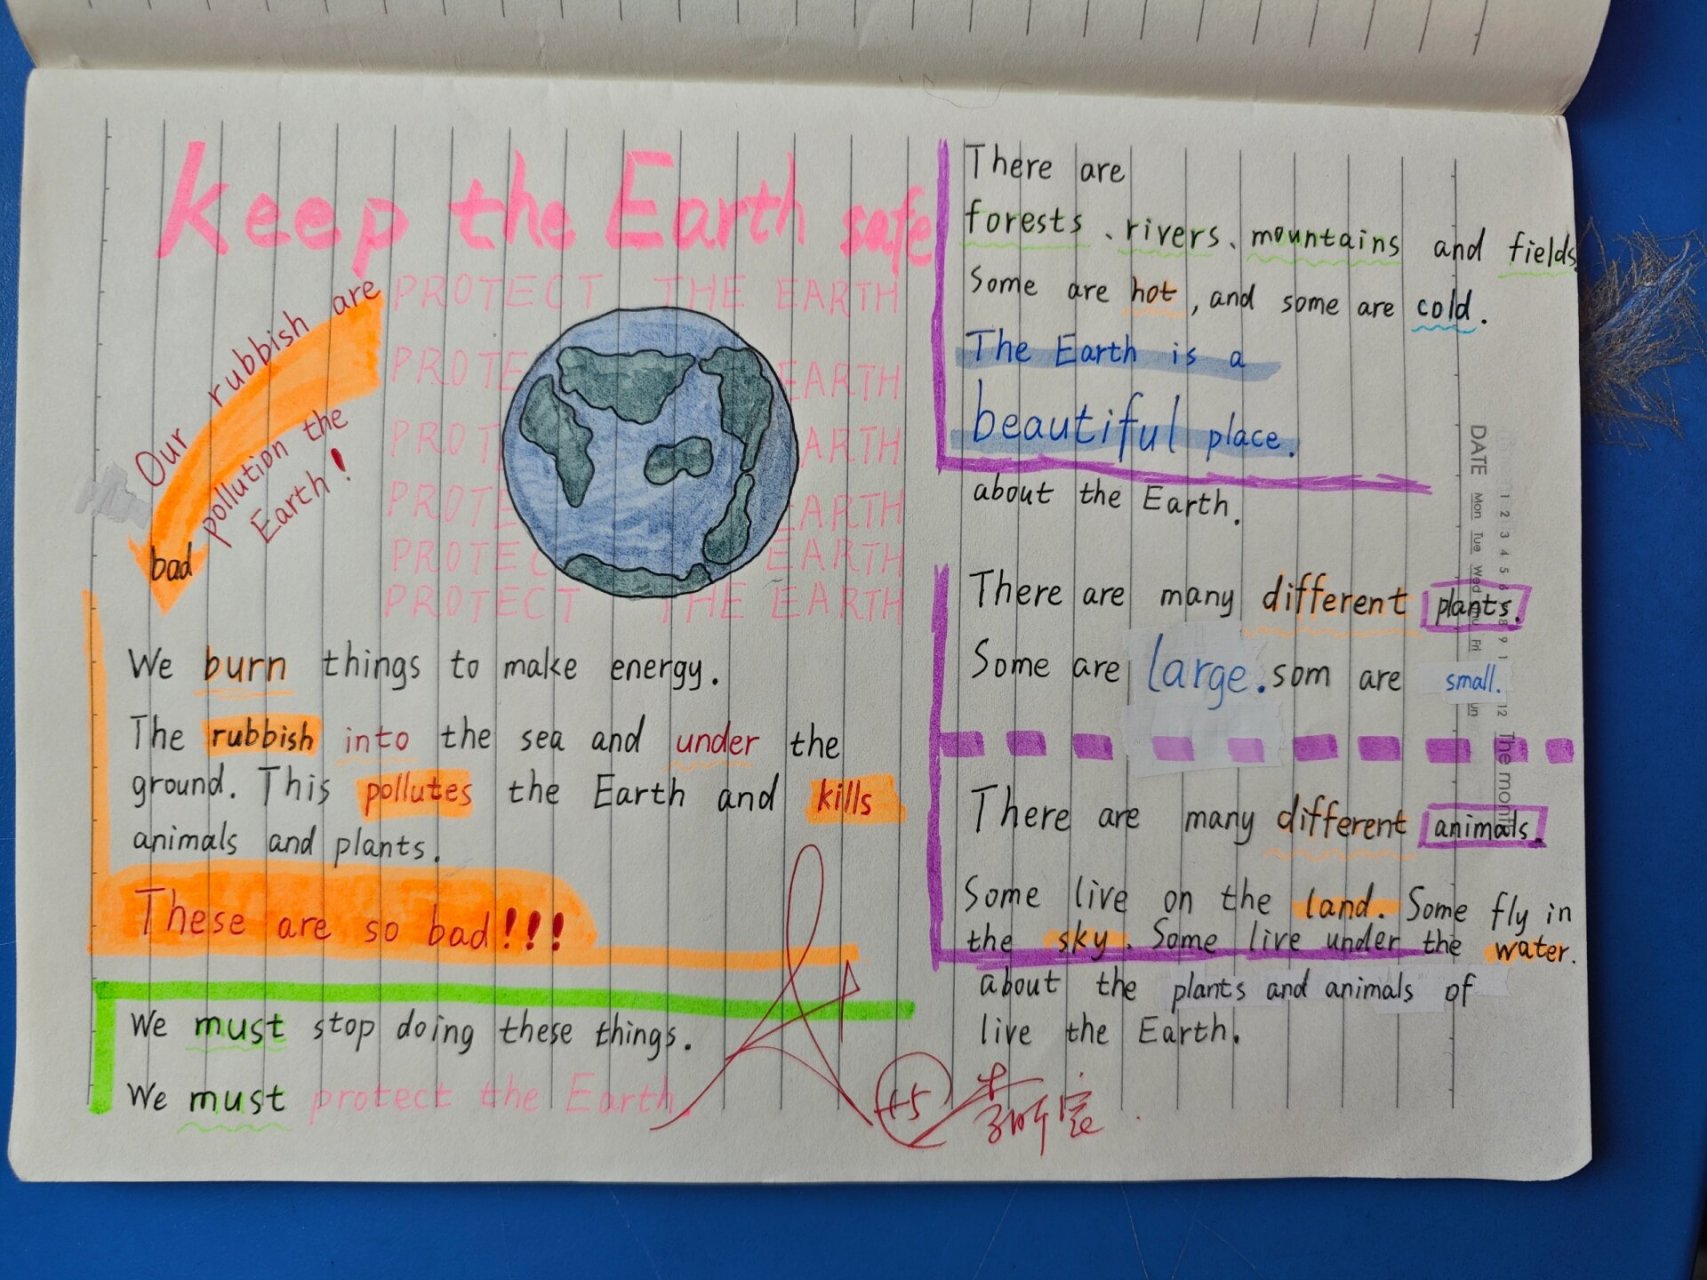 keep the Earth safe
PROTECT THE EARTH
PROTE EARTH
PROT ARTH
PROTE EARTH
PROTEC EARTH
PROTECT THE EARTH
Our rubbish are
pollution the
Earth!
bad
We burn things to make energy.
The rubbish into the sea and under the
ground. This pollutes the Earth and kills
animals and plants.
These are so bad!!!
We must stop doing these things.
We must protect the Earth.
There are
forests、rivers、mountains and fields.
Some are hot, and some are cold.
The Earth is a
beautiful place.
about the Earth.
There are many different plants.
Some are large. som are small.
There are many different animals.
Some live on the land. Some fly in
the sky. Some live under the water.
about the plants and animals of
live the Earth.
+5
DATE Mon Tue Wed Fri
1 2 3 4 5 6 8 9 1 12